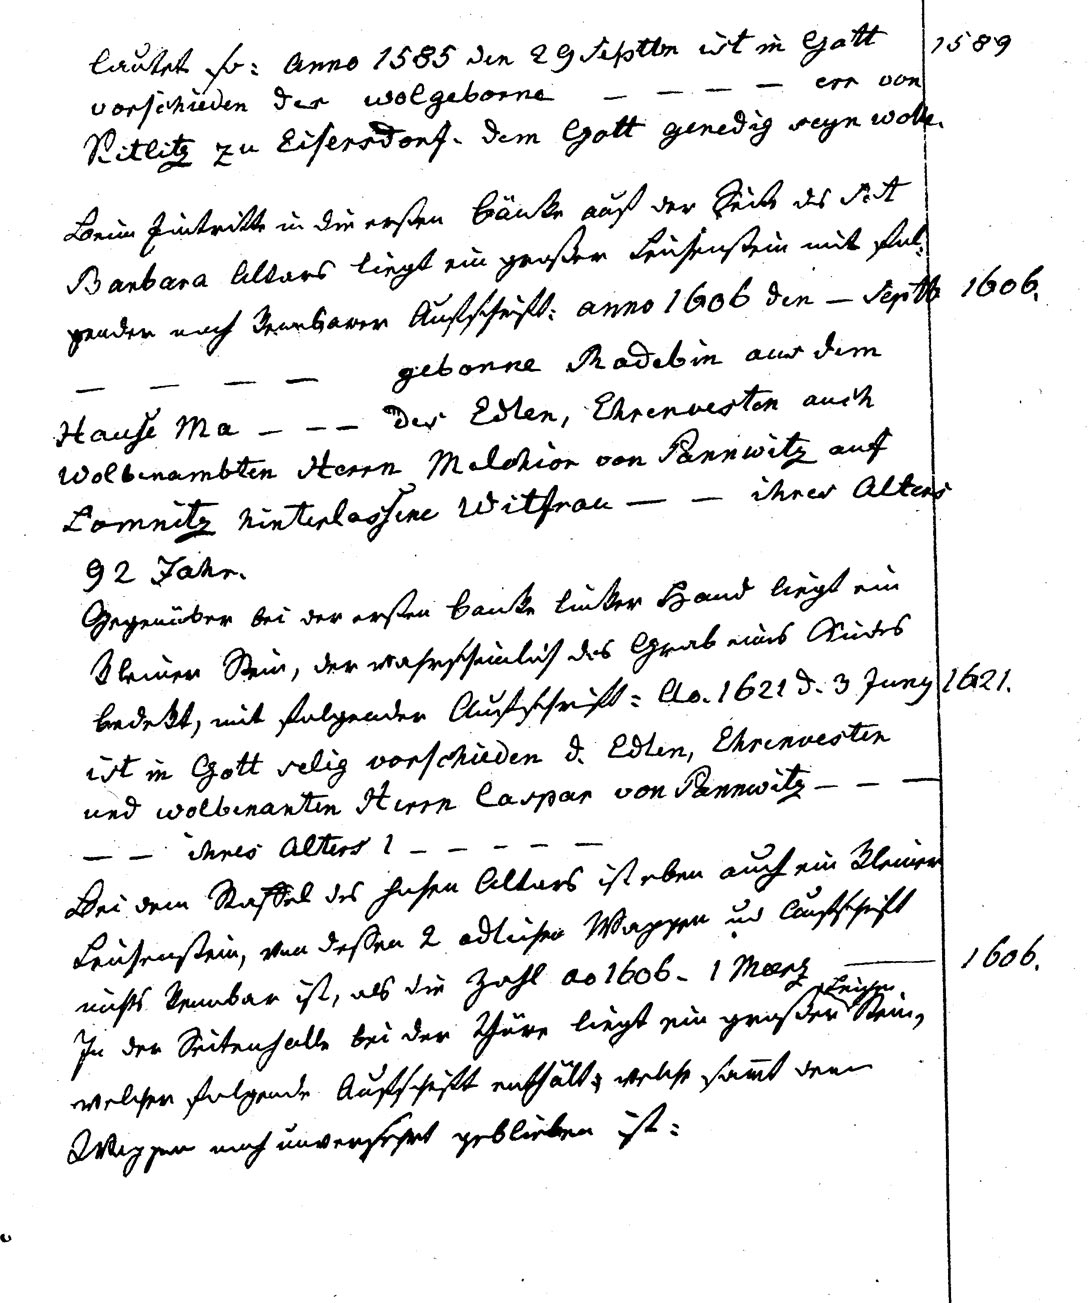 lautet so: Anno 1585 den 29 Septbr ist in Gott 1589
vorschieden der wolgeborne — — — — err von
Kitlitz zu Eisersdorf. dem Gott genedig seyn wolle.
Beim Eintritte in die ersten Bänke auf der Seite des
Barbara Altars liegt ein großer Leichenstein mit fol-
gender noch kennbarer Aufschrift: anno 1606 den — Septb 1606.
— — — — geborne Radebin aus dem
Hause Ma — — — des Edlen, Ehrenvesten auch
Wolbenambten Herrn Melchior von Pannwitz auf
Lomnitz hinterlassene Witfrau — — ihres Alters
92 Jahr.
Gegenüber bei der ersten Banke linker Hand liegt ein
kleiner Stein, der wahrscheinlich das Grab eines Kindes
bedekt, mit folgender Aufschrift: Ao. 1621 d. 3 Juny 1621.
ist in Gott selig vorschieden d. Edlen, Ehrenvesten
und wolbenanten Herrn Caspar von Pannwitz — — —
— — ihres Alters 1 — — — — —
Bei dem Staffel des hohen Altars ist eben auch ein kleiner
Leichenstein, von dessen 2 adlichen Wappen und Aufschrift
nichts kennbar ist, als die Zahl ao 1606. 1 Maerz — 1606.
In der Seitenhalle bei der Thüre liegt ein großer Leichen Stein,
welcher folgende Aufschrift enthält, welche sammt dem
Wappen noch unversehrt geblieben ist: